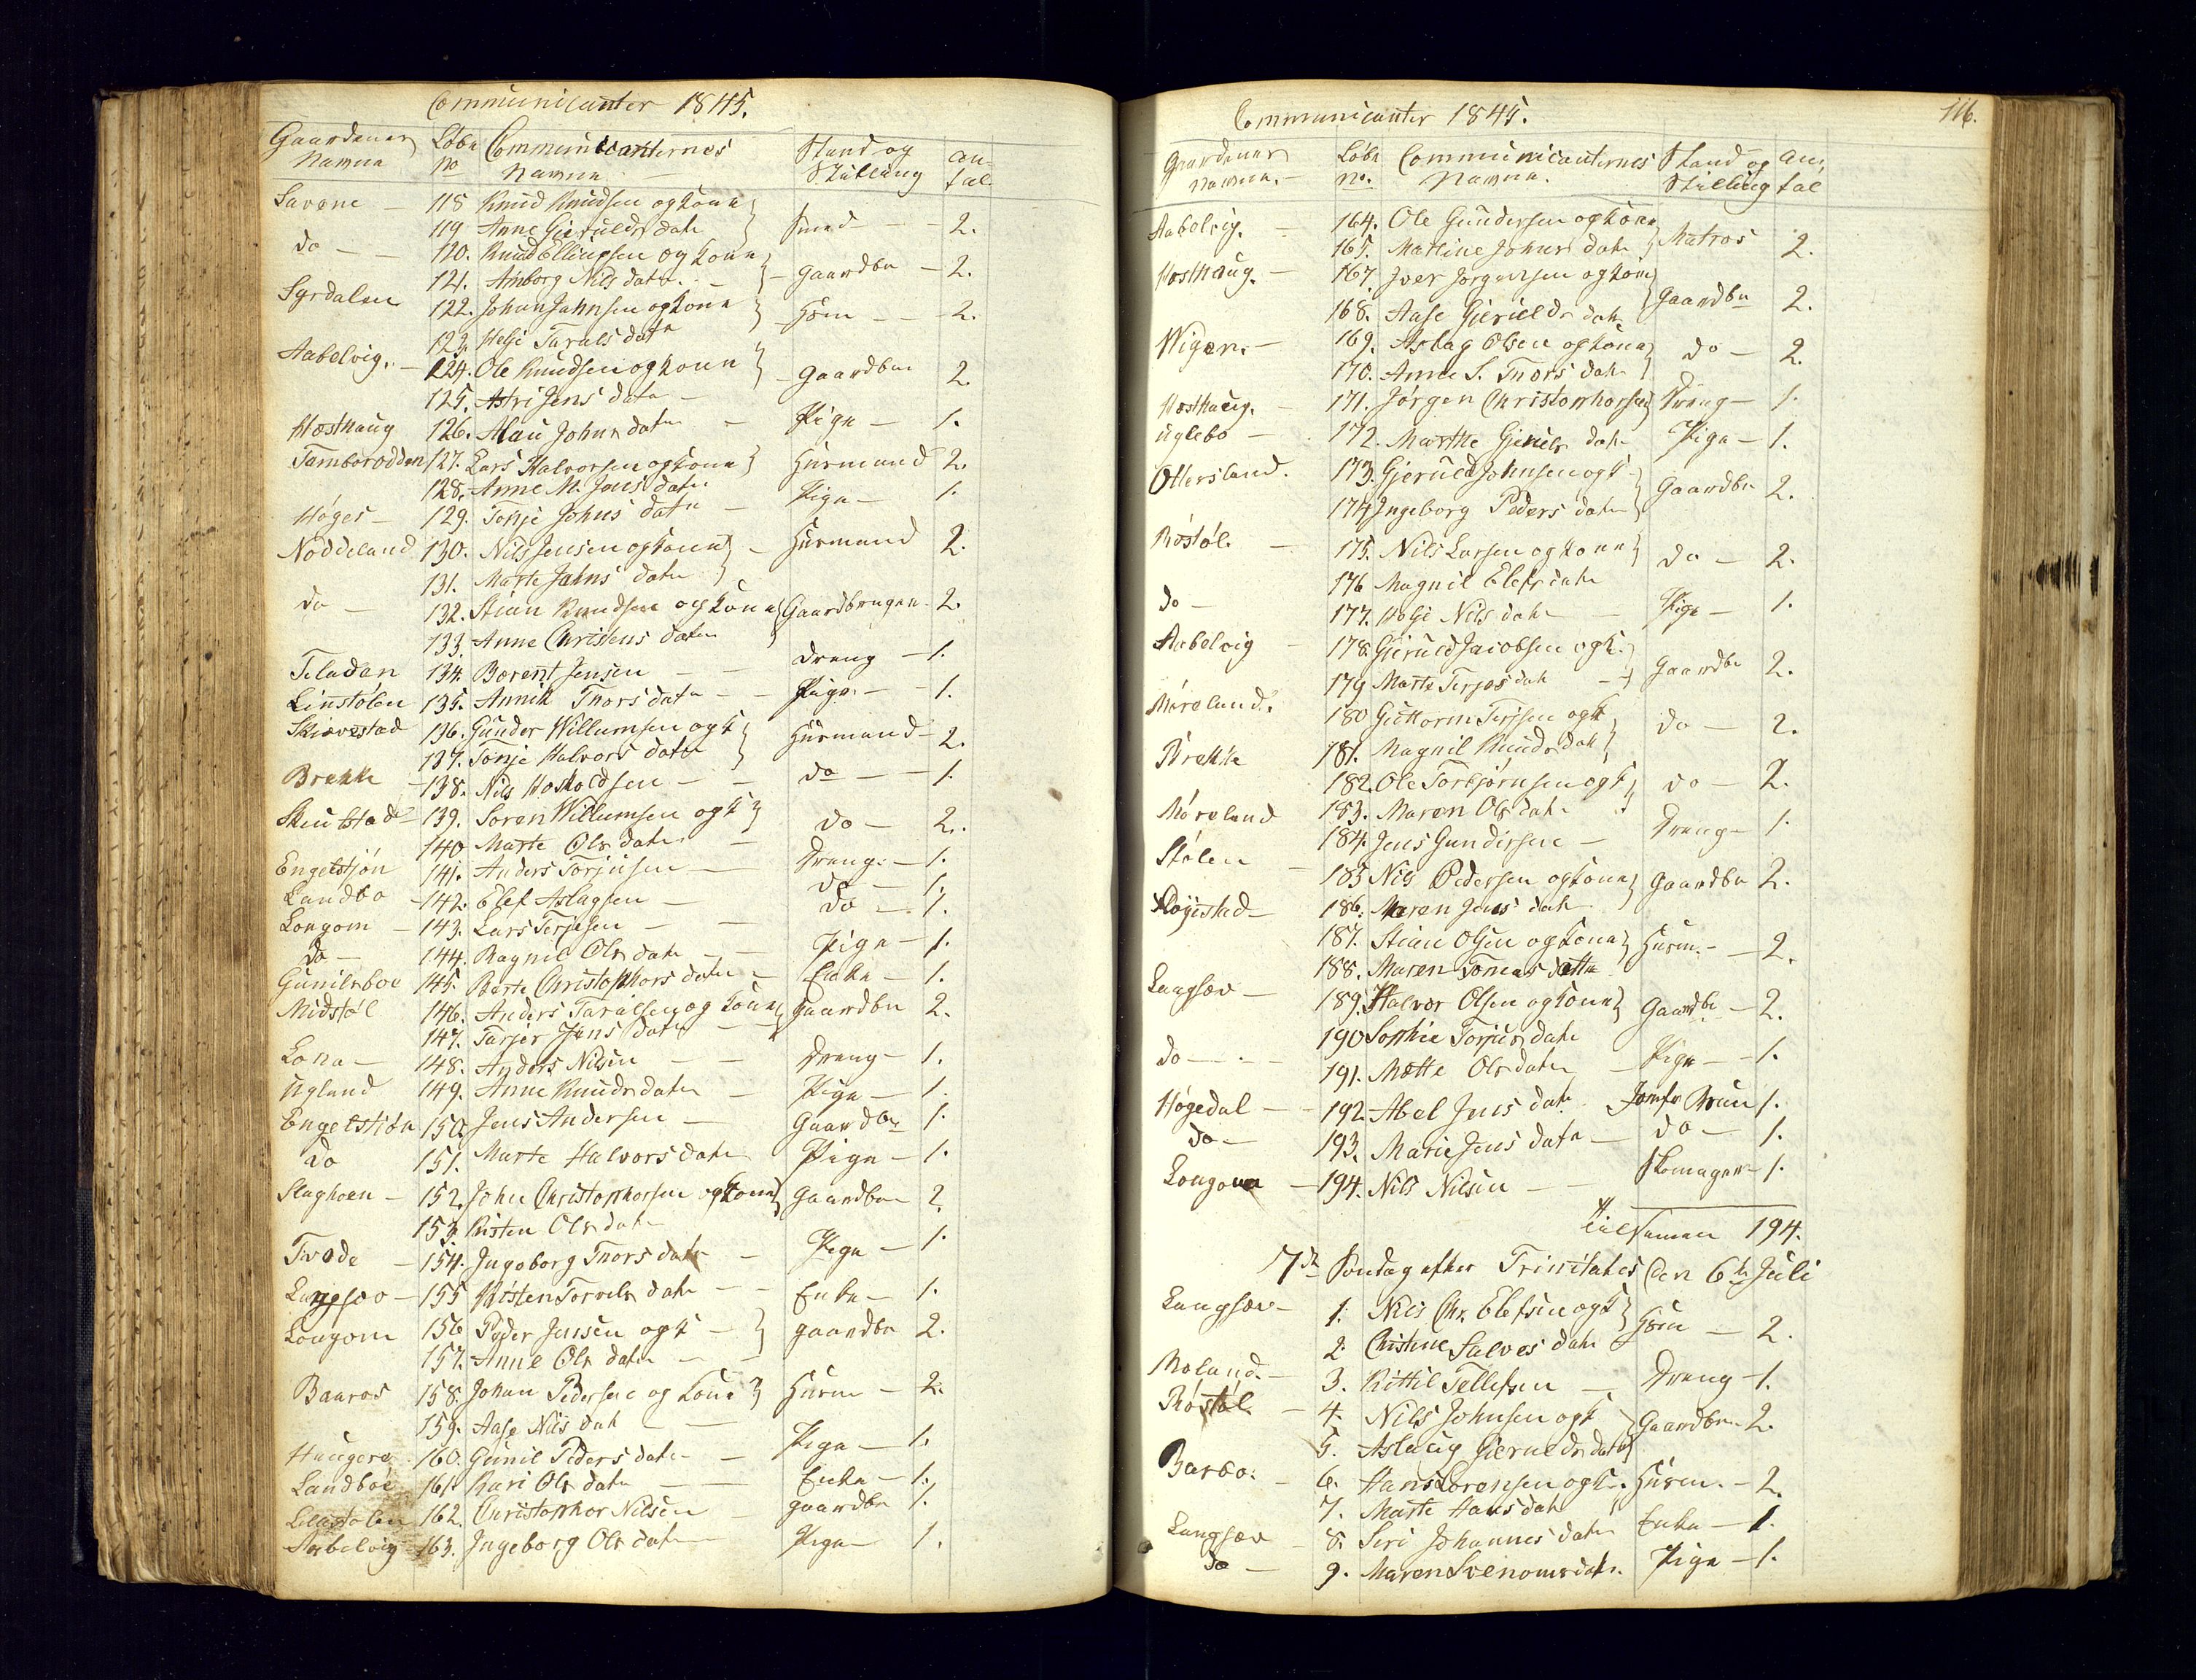 Communicanter 1845.
Gaardenes Løbe Communicanternes Stand og An-
Navne no Navne Stilling tal.
Savene — 118 Knud Knudsen og Kone
119 Anne Gieruldsdatter Smed — 2.
do — 120. Knud Ellingsen og Kone
121. Anborg Nilsdatter — Gaardbr — 2.
Syrdalen 122. Johan Jahnsen og Kone
123. Helje Taralsdatter Hsm — 2.
Aabelvig. — 124. Ole Knudsen og Kone
125. Astri Jensdatter — Gaardbr 2.
Hosthaug 126. Alau Johnsdatter — Pige — 1.
Tamborodden 127. Lars Halvorsen og Kone Husmand 2.
128. Anne M. Jensdatter
Høgei — 129. Tonje Johnsdatter — Pige — 1.
Noddeland 130. Nils Jensen og Kone — Husmand 2.
131. Marte Jahnsdatter
do — 132. Stian Knudsen og Kone Gaardbruger. 2.
133. Anne Christensdatter
Teladen 134. Berent Jensen — dreng — 1.
Linstølen 135. Annih Thorsdatter — Pige. — 1.
Skiævestad 136. Gunder Willumsen og K Husmand — 2.
137. Tonje Halvorsdatter
Brekke — 138. Nils Hoskoldsen — do — 1.
139. Søren Willumsen og K do — 2.
140 Marte Olsdatter —
Engelstjøn 141. Anders Torjusen — Dreng. — 1.
Landbo — 142. Elef Aslagsen — do — 1.
Longom — 143. Lars Terjesen — do — 1.
do — 144. Ragnil Olsdatter — Pige — 1.
Gunilsboe 145. Berte Christophorsdatter — Enke — 1.
Midstøl 146. Anders Taralsen og Kone Gaardbr 2.
147. Tarjer Jensdatter
Lona — 148. Anders Nilsen — Dreng — 1.
Ugland 149. Anne Knudsdatter — Pige — 1.
Engelstiøn 150. Jens Andersen — Gaardbr 1.
do 151. Marte Halvorsdatter Pige — 1.
Slaghoen — 152. John Christophorsen og Kone Gaardbr 2.
153. Kisten Olsdatter
Tvede — 154. Ingeborg Thorsdatter — Pige — 1.
Langsæv — 155 Kisten Torvelsdatter — Enke — 1.
Longom 156 Peder Jensen og K — gaardbr 2.
157. Anne Olsdatter —
Baaros 158. Johan Pedersen og Kone Husm — 2.
159. Aase Nilsdatter —
160. Gunil Pedersdatter — Pige — 1.
Landboe 161. Kari Olsdatter — Enke — 1.
162. Christophor Nilsen — gaardbr 1.
Aabelvig 163. Ingeborg Olsdatter Pige 1.
Communicanter 1845. 116.
Gaardenes Løbe Communicanternes Stand og An-
Navne. — no. Navne. Stilling tal
Aabelvig. — 164. Ole Gundersen og Kone
165. Martine Johnsdatter Matros 2.
Hosthaug. — 167. Iver Jørgensen og Kone
168. Aase Gieruldsdatter Gaardbr 2.
Wigen. — 169. Aslag Olsen og Kone do — 2.
170. Anne S. Thorsdatter
Hosthaug. — 171. Jørgen Christophorsen Dreng — 1.
Uglebo — 172. Marthe Gierulsdatter Pige — 1.
Ottersland. 173. Gjeruld Johnsen og K Gaardbr 2.
174 Ingeborg Pedersdatter
Røstøl. — 175. Nils Larsen og Kone do — 2.
176 Magnil Elefsdatter
do — 177. Helje Nilsdatter — Pige — 1.
Aabelvig — 178. Gieruld Jacobsen og K.
179 Marte Terjesdatter — Gaardbr 2.
Møreland. 180 Guttorm Terjsen og K do — 2.
181. Magnil Knudsdatter
Brekke 182. Ole Torbjørnsen og K do — 2.
183. Maren Olsdatter
Møreland 184. Jens Gundersen — Dreng — 1.
Stølen — 185 Nils Pedersen og Kone Gaardbr 2.
186. Maren Jensdatter
Kløgestad — 187. Stian Olsen og Kone Husm. — 2.
188. Maren Tomasdatter
Langsæv — 189. Halvor Olsen og Kone Gaardbr — 2.
190 Sophie Torjusdatter
do — 191. Mette Olsdatter — Pige — 1.
Høgedal — 192 Abel Jensdatter Jomfr Bruun 1.
do — 193. Marie Jensdatter — do — 1.
Longom — 194. Nils Nilsen — Skomager 1.
tilsammen 194.
7de Søndag efter Trinitates Den 6te Juli
Langsæv — 1. Nils Chr. Elefsen og K Hsm — 2.
2 Christine Salvesdatter
Moland. — 3. Kittil Tellefsen — Dreng — 1.
Røstøl — 4. Nils Johnsen og K Gaardbr. 2.
5. Aslaug Gieruldsdatter
Barbo. — 6. Hans Lorensen og K. Husm. — 2.
7. Marte Hansdatter
Langsæv — 8. Siri Johannesdatter Enke — 1.
do — 9. Maren Svenomsdatter. Pige — 1.